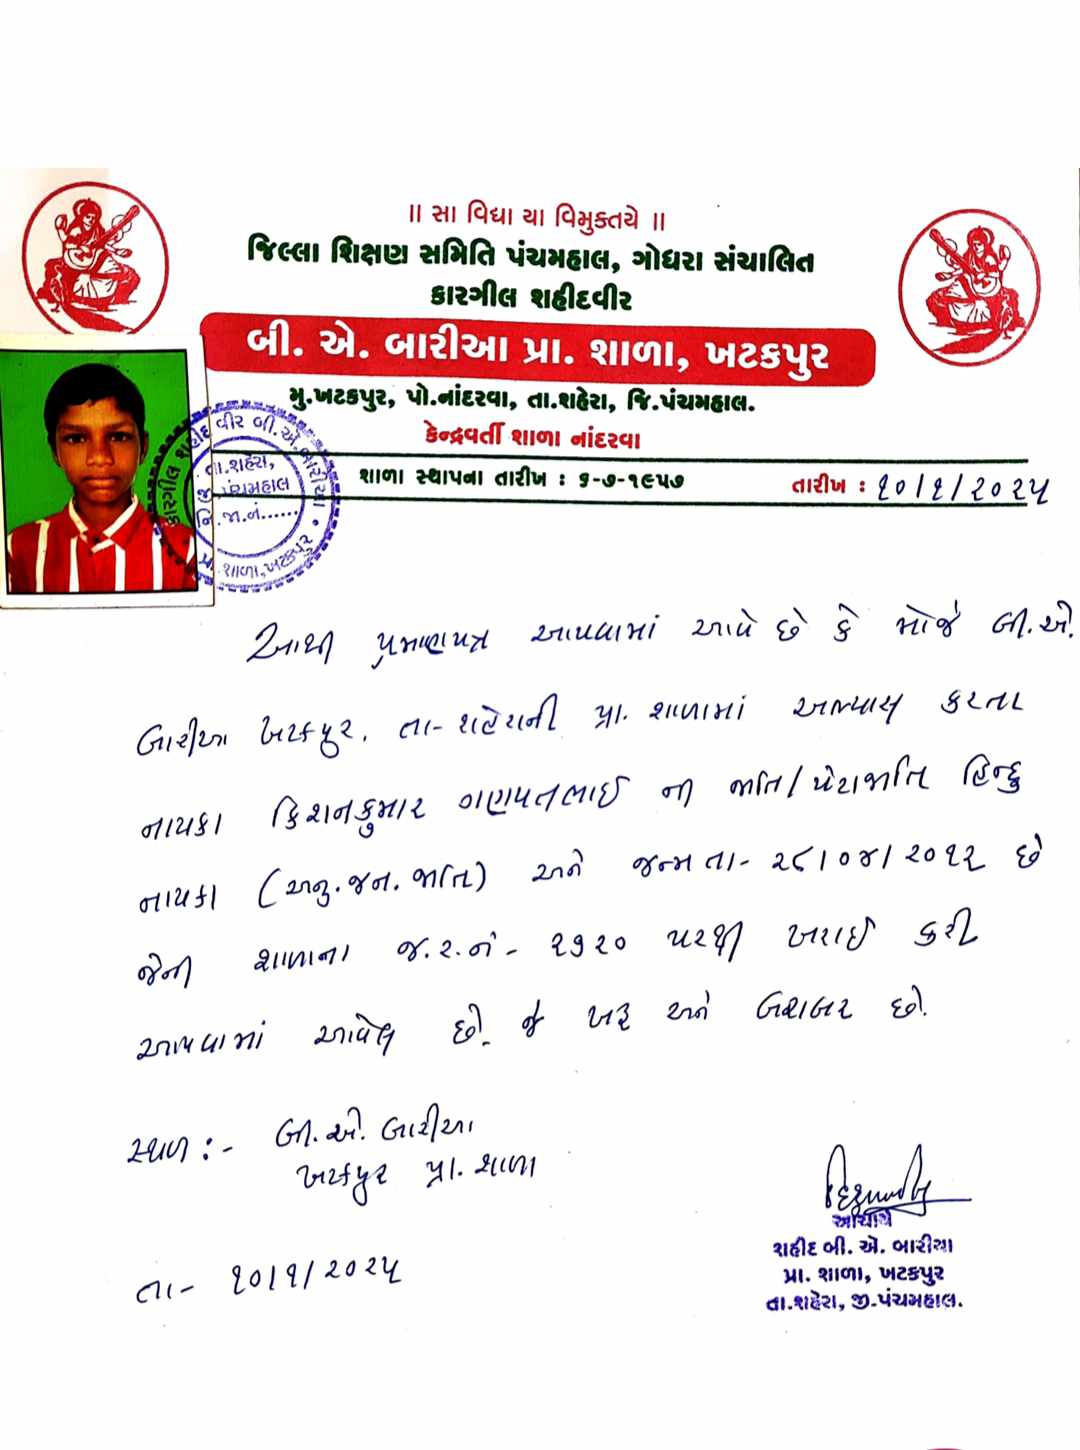 ॥ સા વિદ્યા યા વિમુક્તયે ॥
જિલ્લા શિક્ષણ સમિતિ પંચમહાલ, ગોધરા સંચાલિત
કારગીલ શહીદવીર
બી. એ. બારીઆ પ્રા. શાળા, ખટકપુર
મુ.ખટકપુર, પો.નાંદરવા, તા.શહેરા, જિ.પંચમહાલ.
કેન્દ્રવર્તી શાળા નાંદરવા
શાળા સ્થાપના તારીખ : ૧-૭-૧૯૫૭
તારીખ : ૧૦/૧/૨૦૨૫
કારગીલ શહીદ વીર બી.એ.બારીયા • પ્રા.શાળા,ખટકપુર
તા.શહેરા,
જી.પંચમહાલ
નિ.જા.નં......
આથી પ્રમાણપત્ર આપવામાં આવે છે કે મોજે બી.એ.
બારીઆ ખટકપુર, તા- શહેરાની પ્રા. શાળામાં અભ્યાસ કરતા
નાયકા કિશનકુમાર ગણપતભાઈ ની જાતિ/પેટાજાતિ હિન્દુ
નાયકા (અનુ.જન.જાતિ) અને જન્મ તા- ૨૮/૦૪/૨૦૧૨ છે
જેની શાળાના જ.ર.નં - ૧૭૨૦ પરથી ખરાઈ કરી
આપવામાં આવેલ છે. જે ખરૂ અને બરાબર છે.
સ્થળ :- બી.એ. બારીઆ
ખટકપુર પ્રા. શાળા
તા- ૧૦/૧/૨૦૨૫
આચાર્ય
શહીદ બી. એ. બારીયા
પ્રા. શાળા, ખટકપુર
તા.શહેરા, જી.પંચમહાલ.